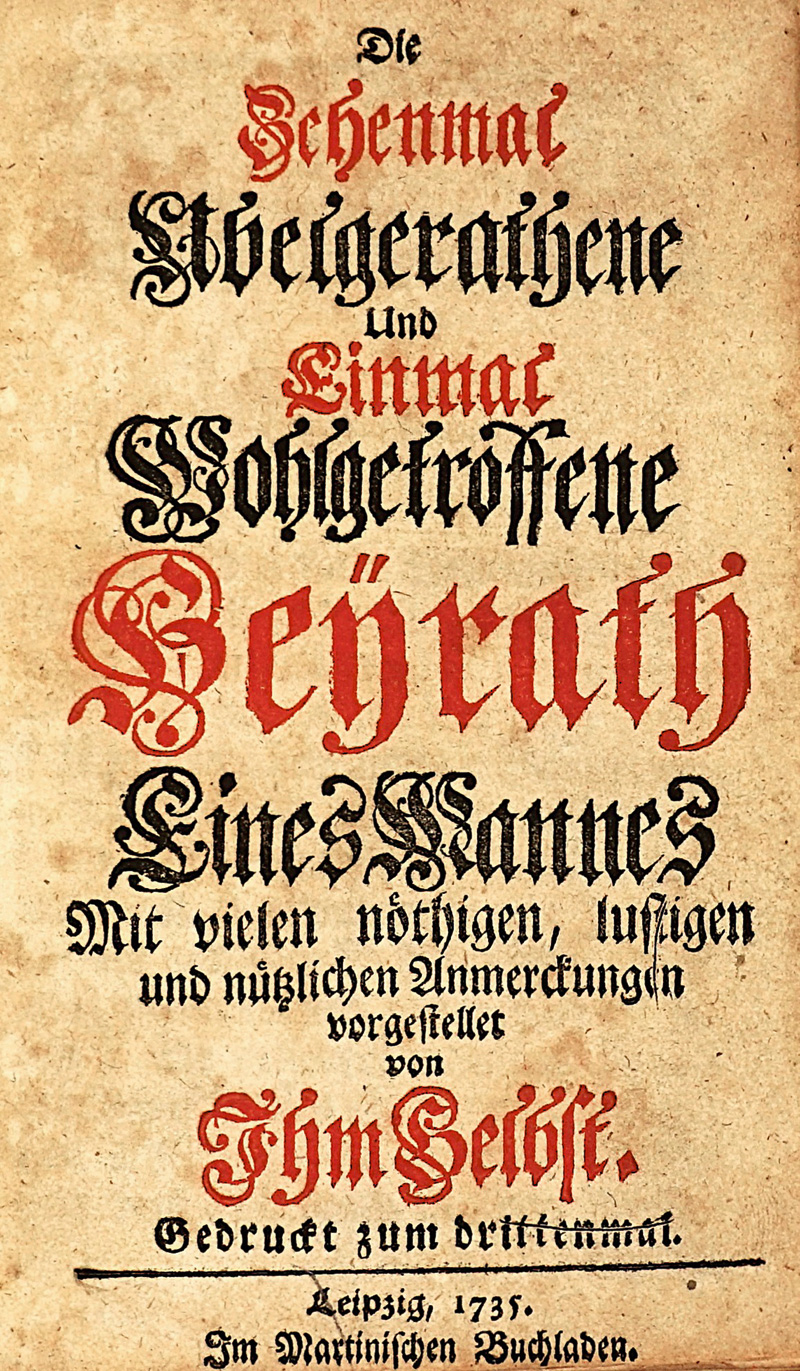 Die
Zehenmal
Ubelgerathene
Und
Einmal
Wohlgetroffene
Heÿrath
Eines Mannes
Mit vielen nöthigen, lustigen
und nützlichen Anmerckungen
vorgestellet
von
Ihm Selbst.
Gedruckt zum drittenmal.
Leipzig, 1735.
Im Martinischen Buchladen.